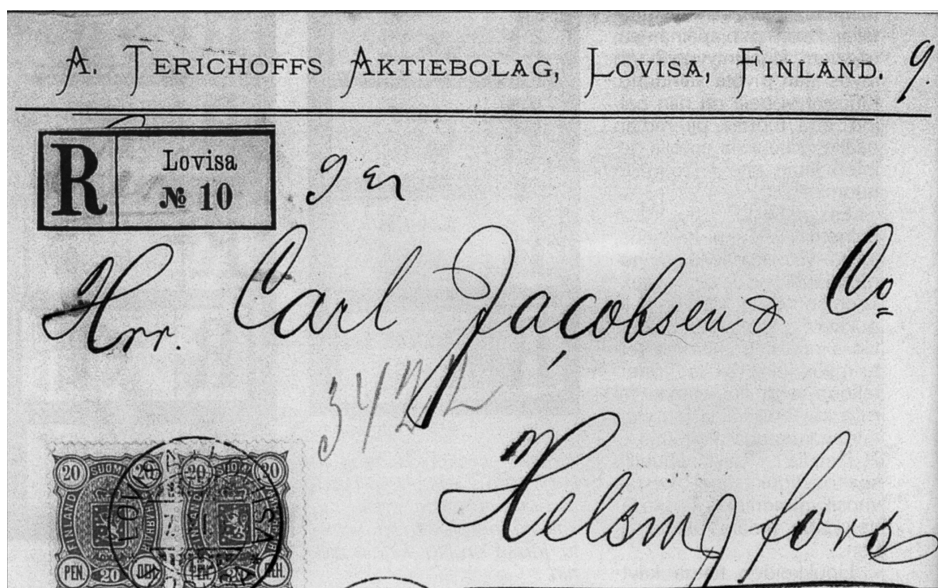 A. TERICHOFFS AKTIEBOLAG, LOVISA, FINLAND. 9.
R Lovisa
№ 10
9 
Hrr. Carl Jacobsen & Co
3422
Helsingfors
20 SUOMI 20 20 SUOMI 20
FINLAND
PEN. 20 PEN. 20